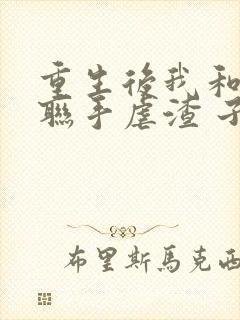 重生後我和
聯手虐渣 子
布里斯馬克西